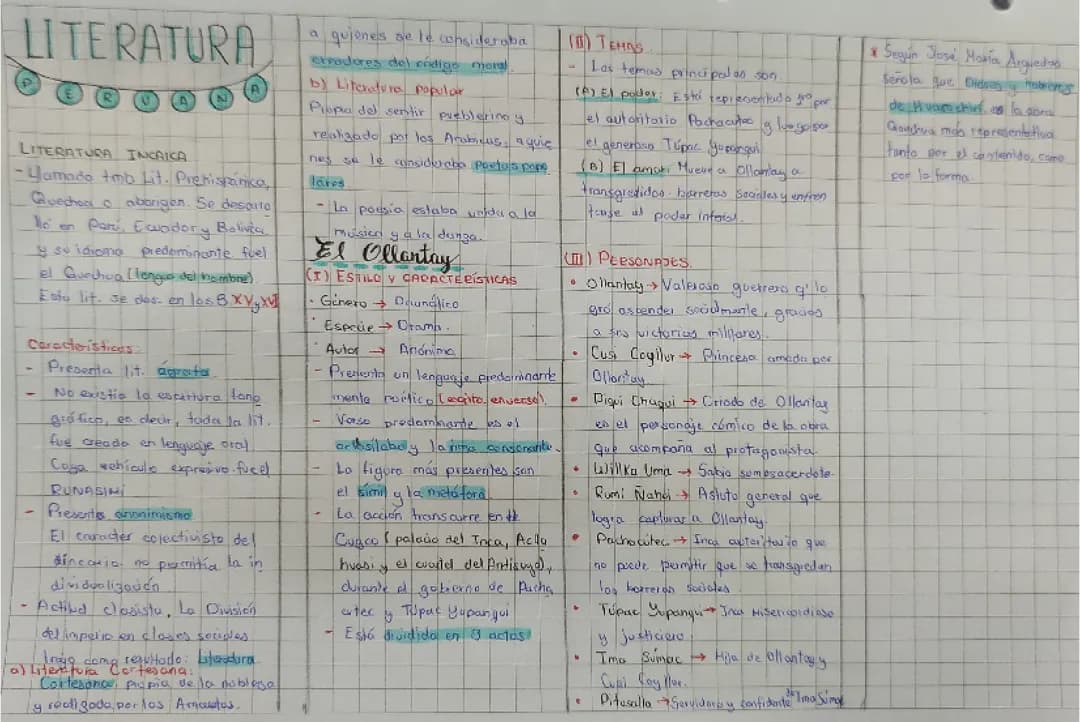 LITERATURA
PERUANA
LITERATURA INCAICA
- Llamada tmb Lit. Prehispánica,
Quechua o aborigen. Se desarro
lló en Perú, Ecuador y Bolivia
y su idioma predominante fuel
el Quechua (lengua del hombre)
Esta lit. se des. en los S XV y XVI
Características:
- Presenta lit. ágrafa
- No existía la escritura fono
gráfica, es decir, toda la lit.
fue creada en lenguaje oral
Cuya vehículo expresivo fue el
RUNASIMI
- Presenta anonimismo
El carácter colectivista del
incario no permitía la in
dividualización
- Actitud clasista. La División
del imperio en clases sociales
trajo como resultado: Literatura
a) Literatura Cortesana:
Cortesana: propia de la nobleza
y realizada por los Amautas.
a quienes se le consideraba
creadores del código moral.
b) Literatura popular
Propia del sentir pueblerino y
realizado por los Arabicus, a quie
nes se le consideraba poetas popu
lares
- La poesía estaba unida a la
música y a la danza.
El Ollantay
(I) ESTILO Y CARACTERÍSTICAS
· Género → Dramático
· Especie → Drama.
· Autor → Anónimo
- Presenta un lenguaje predominante
mente poético (escrito en verso).
- Verso predominante es el
octosílabo y la rima consonante.
- La figura más presentes son
el símil y la metáfora
- La acción transcurre en
Cuzco (palacio del Inca, Aclla
huasi y el cuartel del Antisuyo),
durante el gobierno de Pacha
cutec y Túpac Yupanqui
- Está dividida en 3 actos
(II) TEMAS
- Los temas principales son
(A) El poder: Está representado 1° por
el autoritario Pachacutec y luego por
el generoso Túpac Yupanqui
(B) El amor: Mueve a Ollantay a
transgredidos barreras sociales y enfren
tarse al poder inferial.
(III) PERSONAJES.
• Ollantay → Valeroso guerrero q' lo
gró ascender socialmente, gracias
a sus victorias militares.
• Cusi Coyllur → Princesa amada por
Ollantay
• Piqui Chaqui → Criado de Ollantay
es el personaje cómico de la obra
que acompaña al protagonista.
• Willka Uma → Sabio sumosacerdote.
• Rumi Ñahui → Astuto general que
logra capturar a Ollantay.
• Pachacútec → Inca autoritario que
no puede permitir que se transgredan
las barreras sociales
• Túpac Yupanqui → Inca Misericordioso
y justiciero
• Ima Súmac → Hija de Ollantay y
Cusi Coyllur.
• Pitusalla → Servidora y confidente de Ima Súmac
* Según José María Arguedas
señala que Dioses y hombres
de Huarochirí es la obra
Quechua más representativa
tanto por el contenido, como
por la forma.